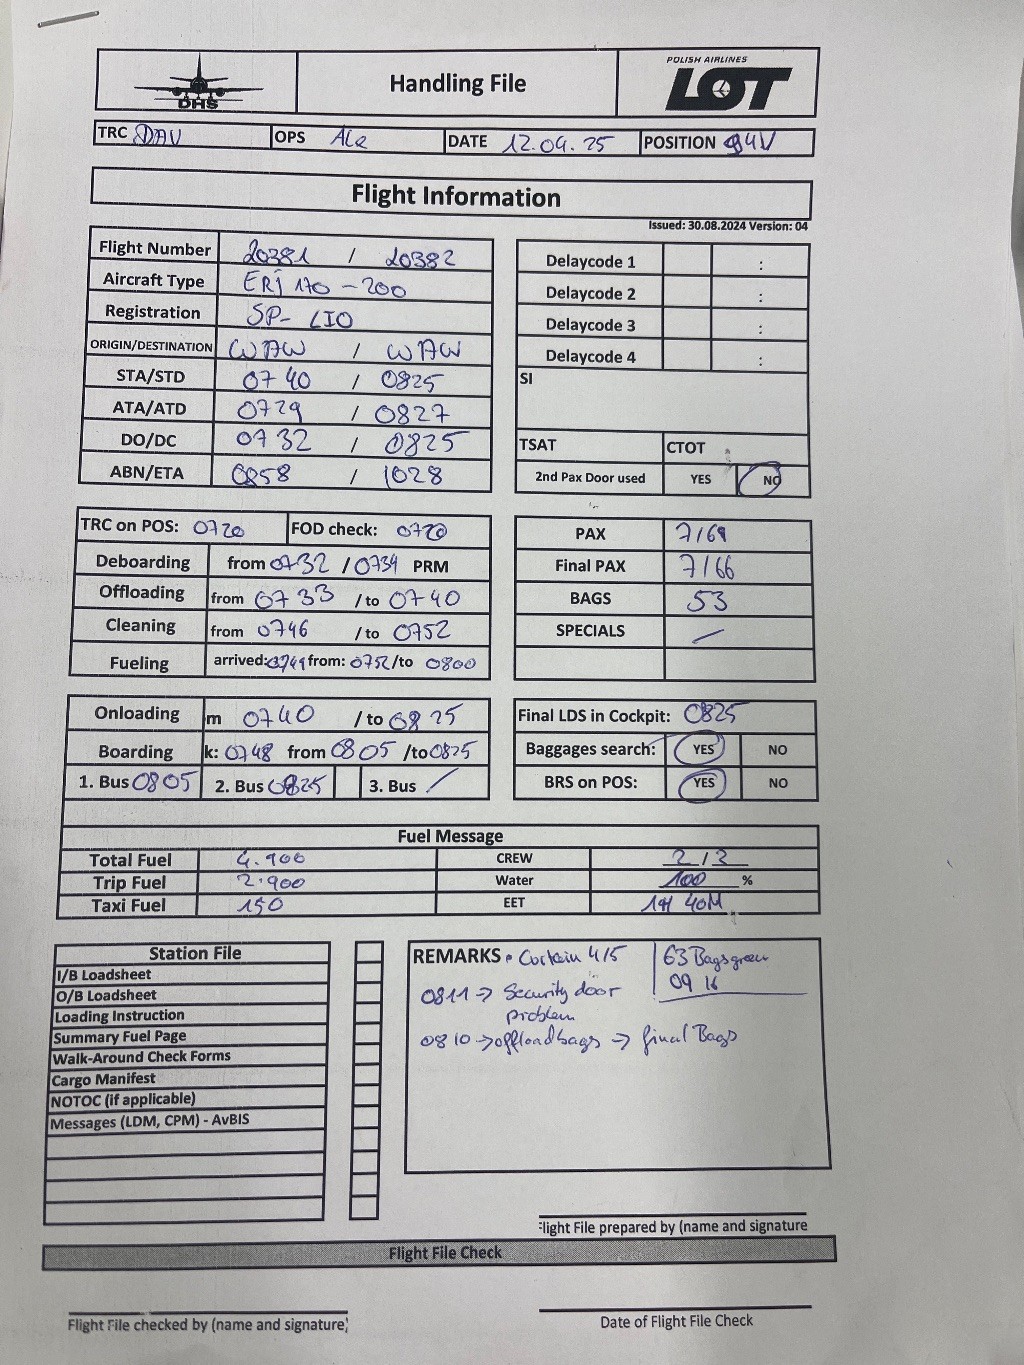 DHS
Handling File
POLISH AIRLINES
LOT
TRC DAV OPS ALR DATE 12.09.25 POSITION 84V
Flight Information
Issued: 30.08.2024 Version: 04
Flight Number 20381 / 20382
Aircraft Type ERJ 170-200
Registration SP-LIO
ORIGIN/DESTINATION WAW / WAW
STA/STD 0740 / 0825
ATA/ATD 0729 / 0827
DO/DC 0732 / 0825
ABN/ETA 0858 / 1028
Delaycode 1 :
Delaycode 2 :
Delaycode 3 :
Delaycode 4 :
SI
TSAT CTOT
2nd Pax Door used YES NO
TRC on POS: 0720 FOD check: 0720
Deboarding from 0732 / 0734 PRM
Offloading from 0733 / to 0740
Cleaning from 0746 / to 0752
Fueling arrived: 0749 from: 0752 /to 0800
PAX 7/69
Final PAX 7/66
BAGS 53
SPECIALS /
Onloading m 0740 / to 0825
Boarding k: 0748 from 0805 /to 0825
1. Bus 0805 2. Bus 0825 3. Bus /
Final LDS in Cockpit: 0825
Baggages search: YES NO
BRS on POS: YES NO
Fuel Message
Total Fuel 4.900 CREW 2/2
Trip Fuel 2.900 Water 100 %
Taxi Fuel 150 EET 1H 40M
Station File
I/B Loadsheet
O/B Loadsheet
Loading Instruction
Summary Fuel Page
Walk-Around Check Forms
Cargo Manifest
NOTOC (if applicable)
Messages (LDM, CPM) - AvBIS
REMARKS • Curtain 4/5
63 Bags green
09 16
0811 → Security door
problem
0810 → offload bags → final Bags
Flight File prepared by (name and signature
Flight File Check
Flight File checked by (name and signature)
Date of Flight File Check